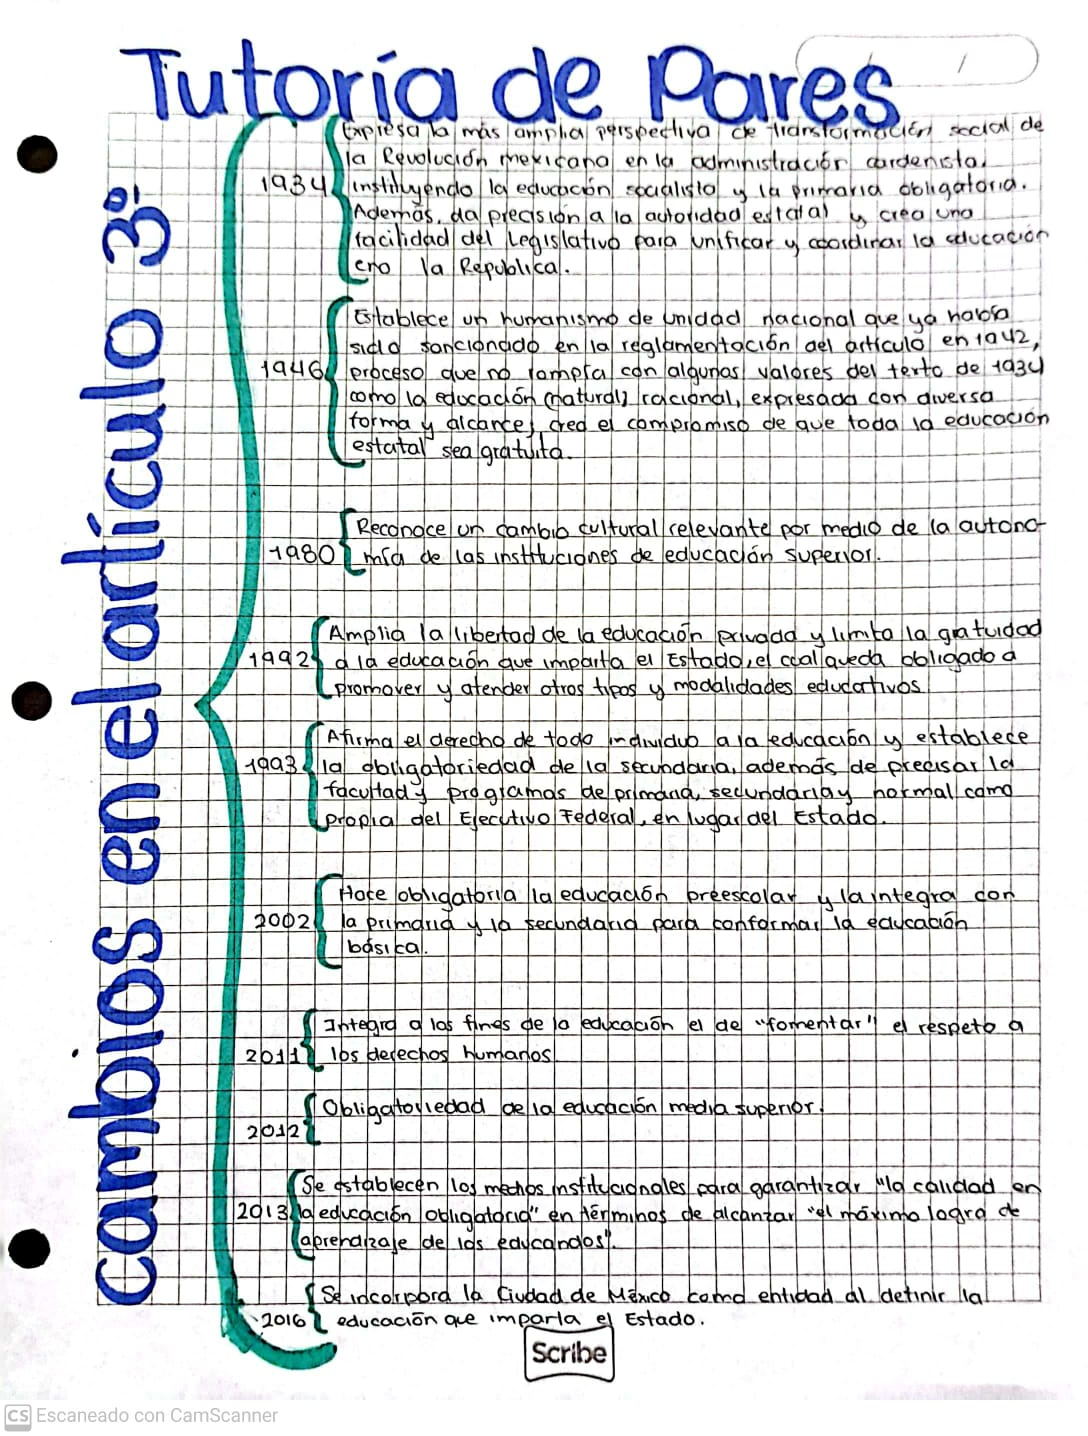 Tutoría de Pares
Cambios en el artículo 3º.
Expresa la más amplia perspectiva de transformación social de
la Revolución mexicana en la administración cardenista.
1934 instituyendo la educación socialista y la primaria obligatoria.
Además, da precisión a la autoridad estatal y crea una
facilidad del Legislativo para unificar y coordinar la educación
eno la Republica.
Establece un humanismo de unidad nacional que ya había
sido sancionado en la reglamentación del artículo en 1942,
1946 proceso que no rompía con algunos valores del texto de 1934
como la educación (natural) racional, expresada con diversa
forma y alcance, creó el compromiso de que toda la educación
estatal sea gratuita.
Reconoce un cambio cultural relevante por medio de la autono-
1980 mía de las instituciones de educación superior.
Amplia la libertad de la educación privada y limita la gratuidad
1992 a la educación que imparta el Estado, el cual queda obligado a
promover y atender otros tipos y modalidades educativos.
Afirma el derecho de todo individuo a la educación y establece
1993 la obligatoriedad de la secundaria, además de precisar la
facultad y programas de primaria, secundaria y normal como
propia del Ejecutivo Federal, en lugar del Estado.
Hace obligatoria la educación preescolar y la integra con
2002 la primaria y la secundaria para conformar la educación
básica.
Integra a los fines de la educación el de "fomentar" el respeto a
2011 los derechos humanos
Obligatoriedad de la educación media superior.
2012
Se establecen los medios institucionales para garantizar "la calidad en
2013 la educación obligatoria" en términos de alcanzar "el máximo logro de
aprendizaje de los educandos".
Se incorpora la Ciudad de México como entidad al definir la
2016 educación que imparta el Estado.
Scribe
CS Escaneado con CamScanner